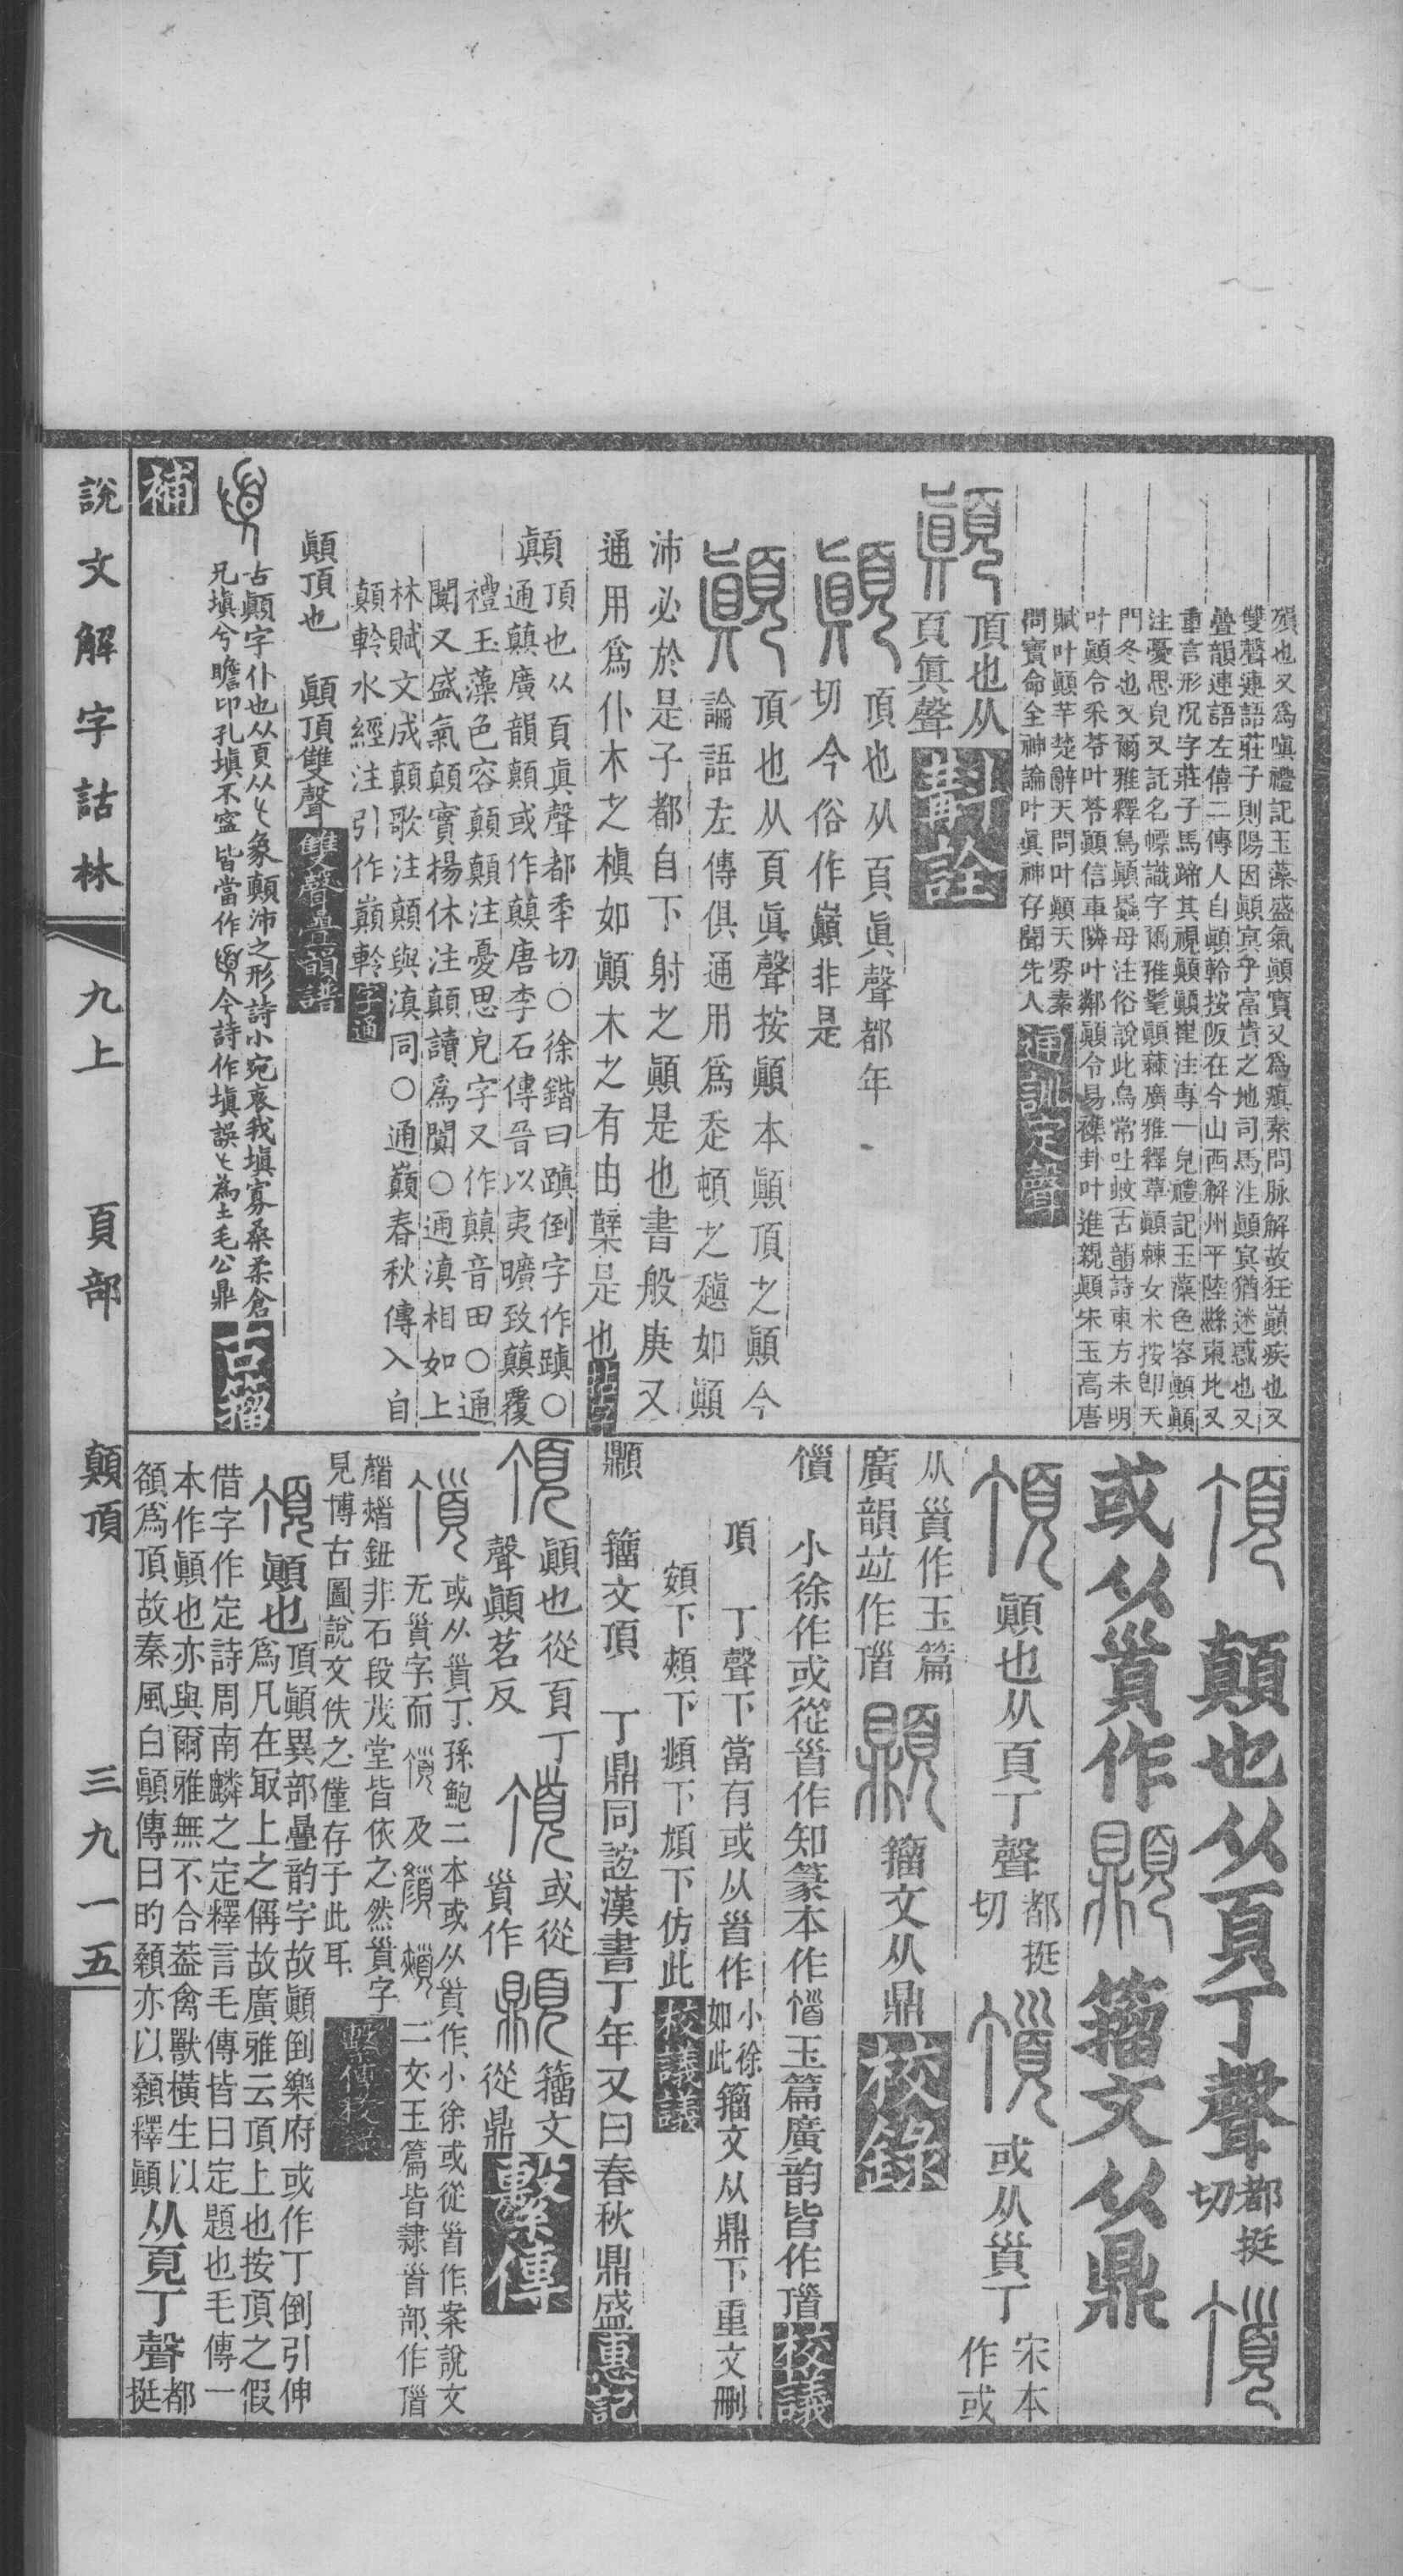 殞也又爲嗔禮記玉藻盛氣顚實又爲瘨素問脉解故狂巔疾也又
雙聲連語莊子則陽因顚冥乎富貴之地司馬注顚冥猶迷惑也又
疊韻連語左僖二傳人自顚軨按阪在今山西解州平陸縣東北又
重言形况字莊子馬蹄其視顚顚崔注專一皃禮記玉藻色容顚顚
注憂思皃又託名幖識字爾雅髦顚蕀廣雅釋草顚棘女木按卽天
門冬也又爾雅釋鳥顚蟁母注俗說此鳥常吐蚊古韻詩東方未明
叶顚令采苓叶苓顚信車隣叶鄰顚令易襍卦叶進親顚宋玉高唐
賦叶顚芊楚辭天問叶顚天雰素
問寶命全神論叶眞神存聞先人 通訓定聲
頂也从
頁眞聲 斠詮
頂也从頁眞聲都年
切今俗作巔非是
頂也从頁眞聲按顚本顚頂之顚今
論語左傳俱通用爲 頓之 如顚
沛必於是子都自下射之顚是也書般庚又
通用爲仆木之槙如顚木之有由蘖是也
顚 頂也从頁眞聲都季切○徐鍇曰蹎倒字作蹎○
通蹎廣韻顚或作 唐李石傳晉以夷曠致 覆
禮玉藻色容顚顚注憂思皃字又作 音田○通
闐又盛氣顚實揚休注顚讀爲闐○通滇相如上
林賦文成顚歌注顚與滇同○通巔春秋傳入自
顚軨水經注引作巔軨 字通
顚頂也 顚頂雙聲 雙聲疊韻譜
古顚字仆也从頁从匕象顚沛之形詩小宛哀我塡寡桑柔倉
兄塡兮瞻卬孔塡不寍皆當作 今詩作塡誤匕爲土毛公鼎 古籀
補
頂 顚也从頁丁聲 都挺切
或从𩠐作 籀文从鼎
顚也从頁丁聲 都挺切 或从𩠐丁 宋本作或
从𩠐作玉篇廣韻竝作䪴 籀文从鼎 校錄
小徐作或從𩠐作知篆本作 玉篇廣韵皆作䪴 校議
項 丁聲下當有或从𩠐作 小徐如此 籀文从鼎下重文刪
頞下頰下頫下頎下仿此 校議議
顁 籀文頂 丁鼎同誼漢書丁年又曰春秋鼎盛 惠記
顚也從頁丁聲顚茗反 或從𩠐作 籀文從鼎 繫傳
或从𩠐丁孫鮑二本或从𩠐作小徐或從𩠐作案說文
无𩠐字而 及 二文玉篇皆隸𩠐部作䪴
鈕非石段茂堂皆依之然𩠐字
見博古圖說文佚之僅存于此耳 繫傳校錄
顚也 頂顚異部疊韵字故顚倒樂府或作丁倒引伸
爲凡在冣上之偁故廣雅云頂上也按頂之假
借字作定詩周南麟之定釋言毛傳皆曰定題也毛傳一
本作顚也亦與爾雅無不合葢禽獸橫生以
頟爲頂故秦風白顚傳曰旳顙亦以顙釋顚 从頁丁聲 都挺
說文解字詁林 九上 頁部 顚頂 三九一五